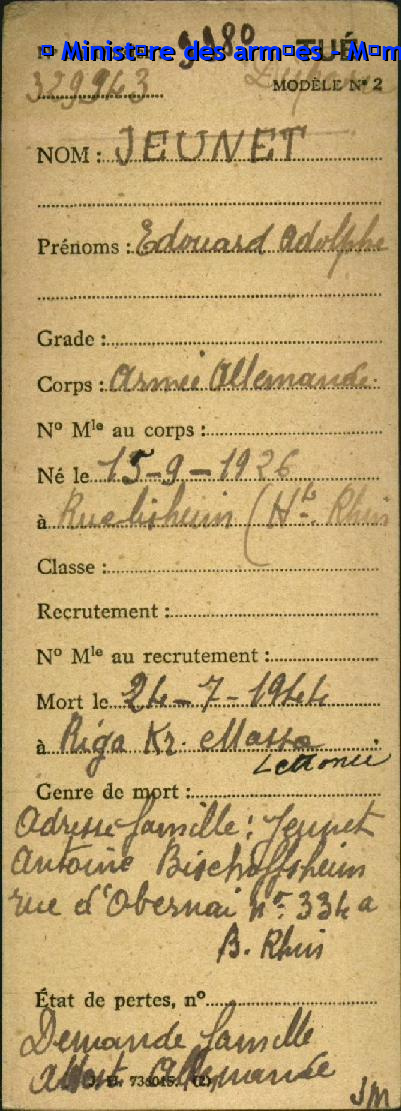 3980 TUÉ
329943
MODÈLE N° 2
NOM : JEUNET
Prénoms : Edouard Adolphe
Grade :
Corps : Armée Allemande.
N° Mle au corps :
Né le 15-9-1926
à Ruelisheim (Ht. Rhin
Classe :
Recrutement :
N° Mle au recrutement :
Mort le 24-7-1944
à Riga Kr.
Lettonie
Genre de mort :
Adresse famille : Jeunet
Antoine Bischoffsheim
rue d'Obernai n° 334 a
B. Rhin
État de pertes, n°
Demande famille
Allemande
JM